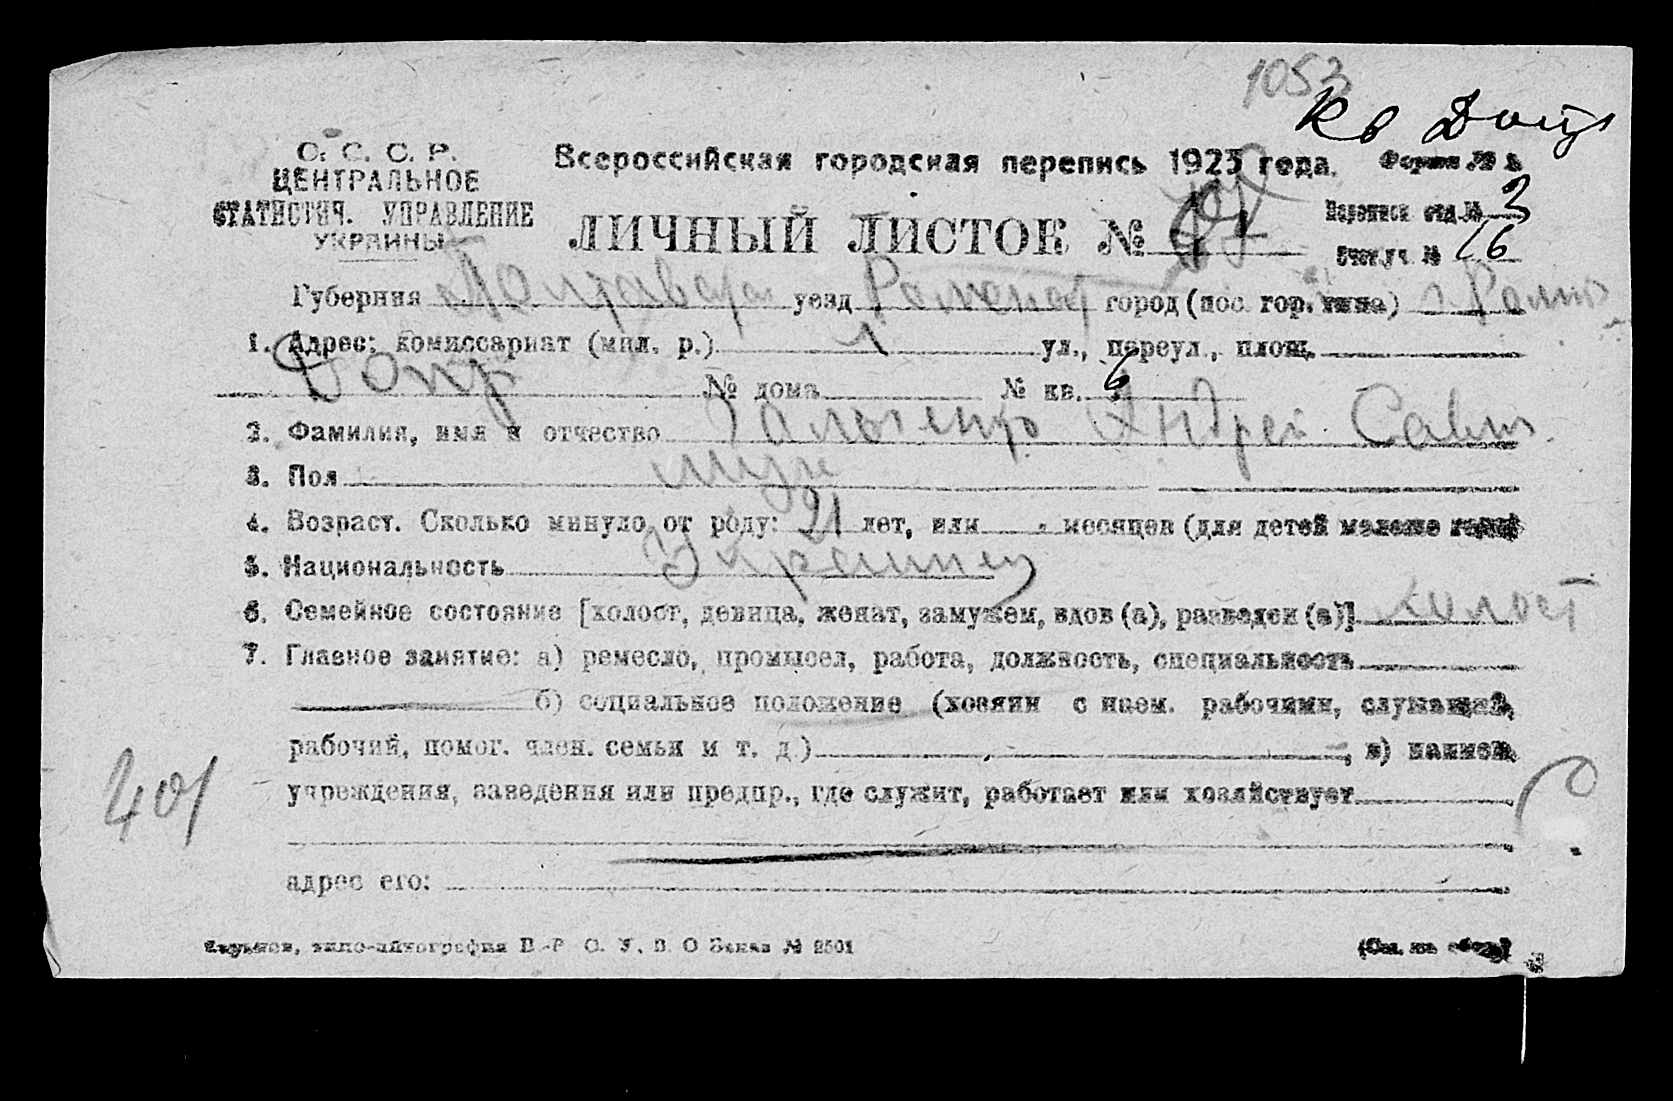 1053
Кв Допр
С. С. С. Р.
ЦЕНТРАЛЬНОЕ
СТАТИСТИЧ. УПРАВЛЕНИЕ
УКРАИНЫ
Всероссийская городская перепись 1923 года. Форма №
ЛИЧНЫЙ ЛИСТОК №
Переписн отд. № 3
Счет. уч. № 16
Губерния Полтавская уезд Роменский город (пос. гор. типа) г. Ромны
1. Адрес: комиссариат (мил. р.) 1 ул., переул., площ.
Допр № дома № кв. 6
2. Фамилия, имя и отчество Андрей Савич
3. Пол муж
4. Возраст. Сколько минуло от роду: 21 лет, или - месяцев (для детей моложе года)
5. Национальность Украинец
6. Семейное состояние [холост, девица, женат, замужем, вдов (а), разведен (а)] холост
7. Главное занятие: а) ремесло, промысел, работа, должность, специальность
б) социальное положение (хозяин с наем. рабочими, служащий,
рабочий, помог. член. семьи и т. д.) , в) наимен.
учреждения, заведения или предпр., где служит, работает или хозяйствует
401
адрес его:
Харьков, типо-литография В.-Р. О. У. В. О Заказ № 2501
(См. на обор.)